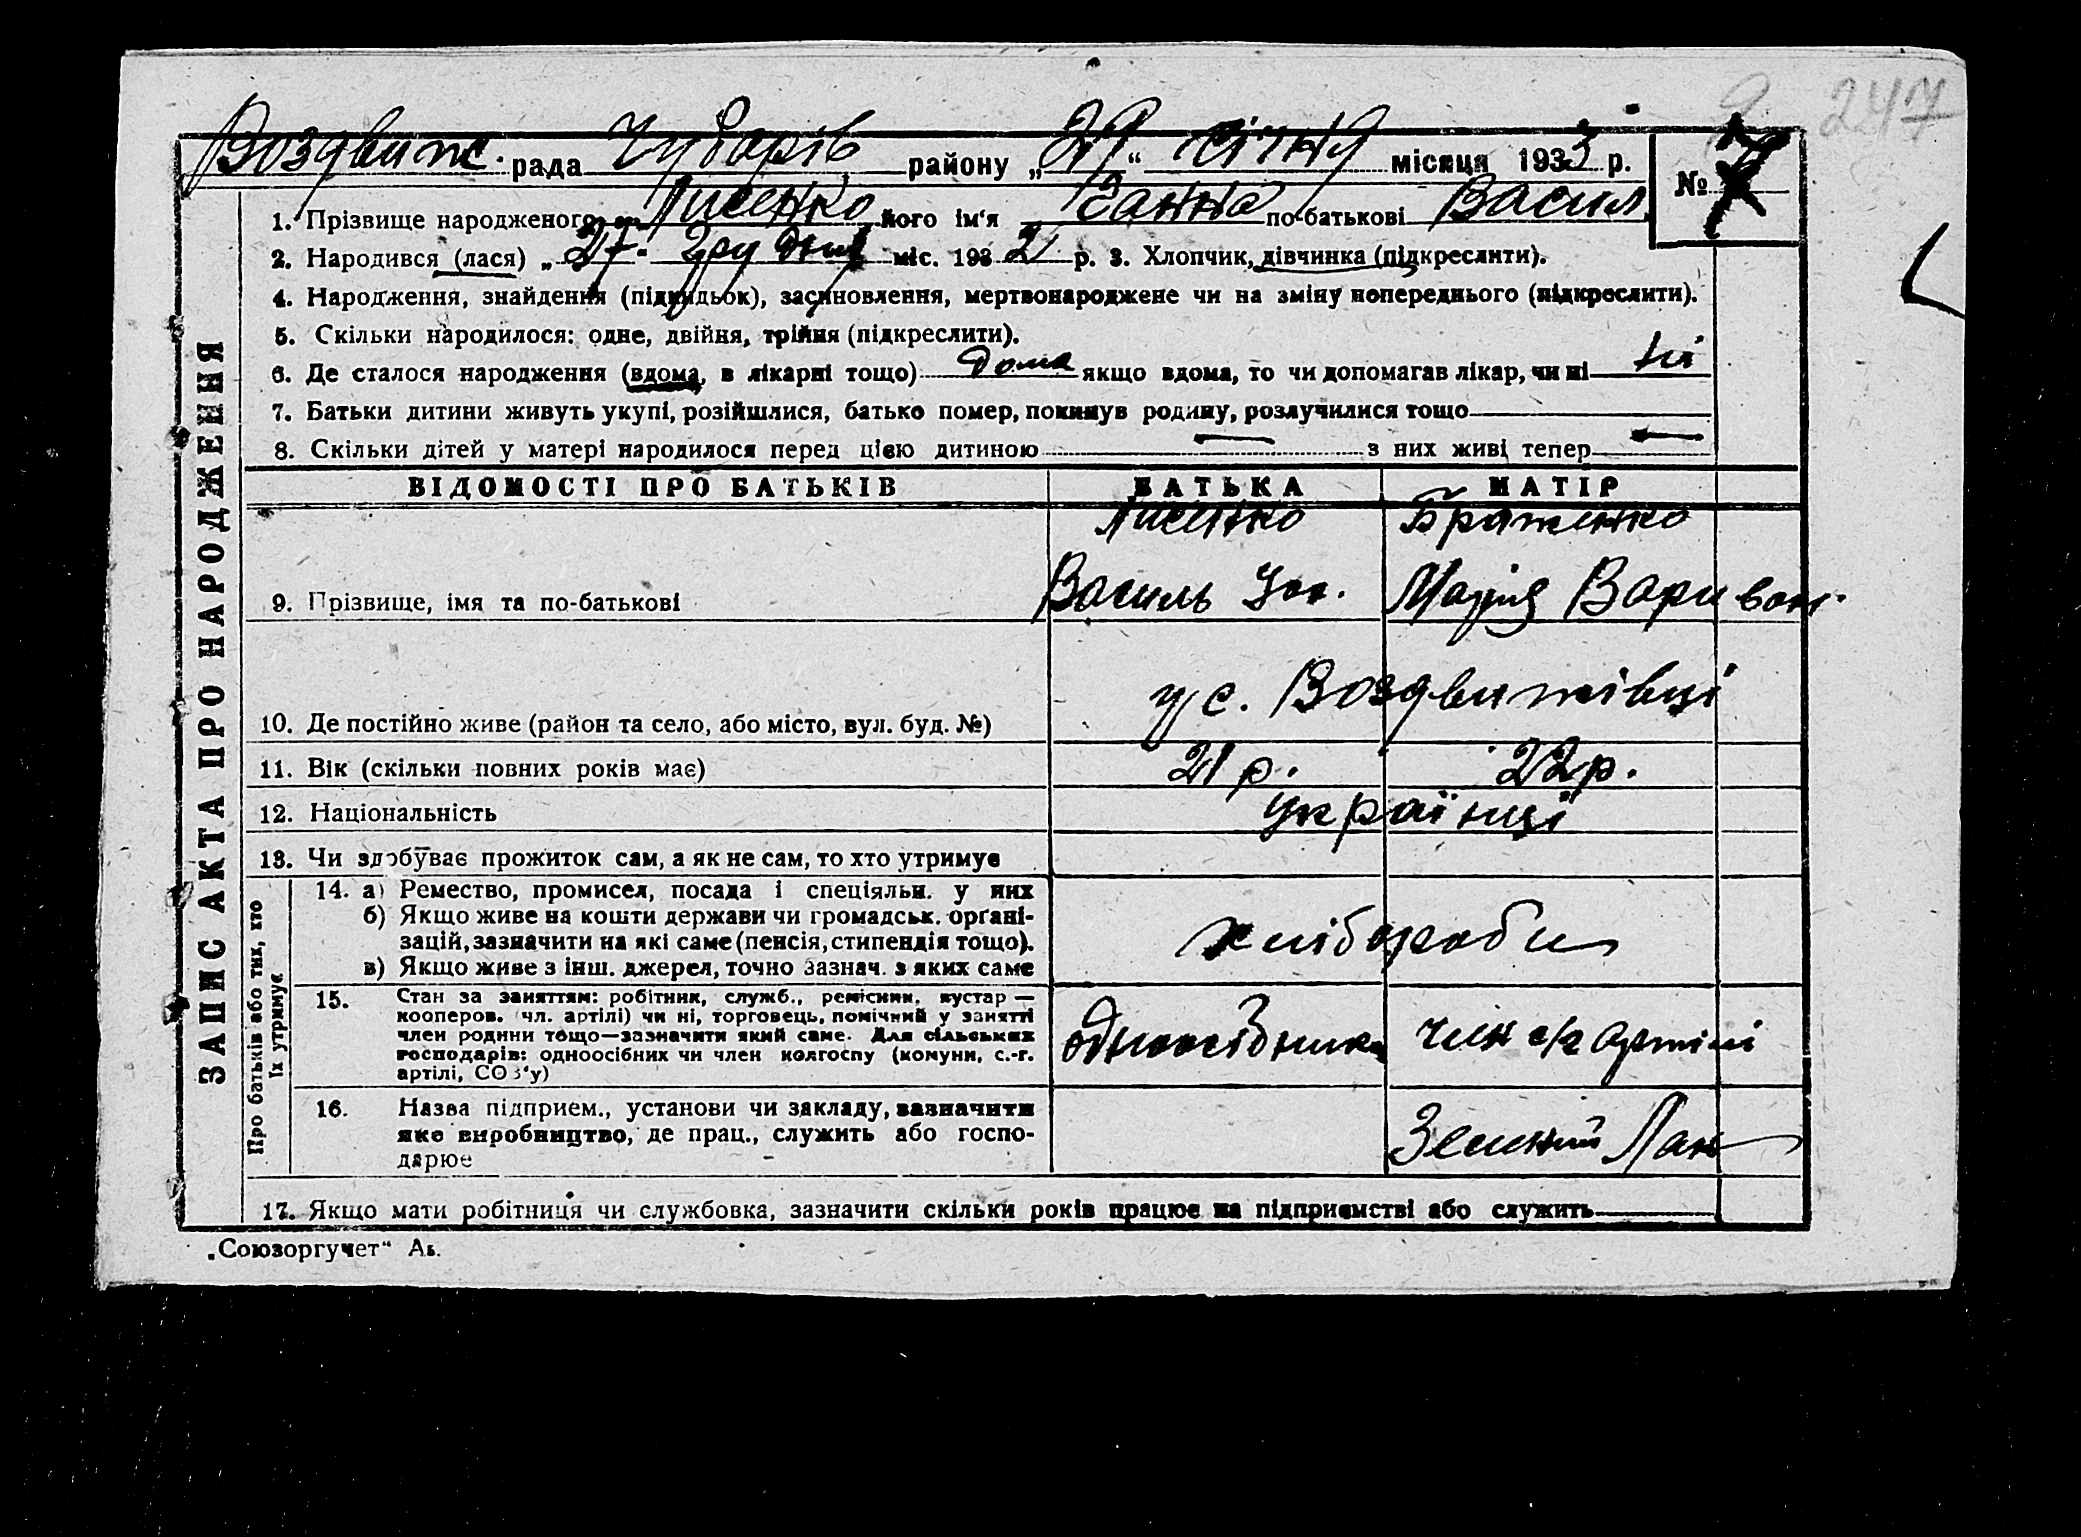 247
Воздвиж. рада Чубарів району „29“ січня місяця 1933 р. №
1. Прізвище народженого Лисенко його ім'я Ганна по-батькові Васил.
2. Народився (лася) „27“ грудня міс. 1932 р. 3. Хлопчик, дівчинка (підкреслити).
4. Народження, знайдення (підкидьок), засиновлення, мертвонароджене чи на зміну попереднього (підкреслити).
5. Скільки народилося: одне, двійня, трійня (підкреслити).
6. Де сталося народження (вдома, в лікарні тощо) дома якщо вдома, то чи допомагав лікар, чи ні ні
7. Батьки дитини живуть укупі, розійшлися, батько помер, покинув родину, розлучилися тощо
8. Скільки дітей у матері народилося перед цією дитиною — з них живі тепер —
ЗАПИС АКТА ПРО НАРОДЖЕННЯ
ВІДОМОСТІ ПРО БАТЬКІВ БАТЬКА МАТІР
Лисенко Браженко
9. Прізвище, імя та по-батькові Василь Марія Варивон.
10. Де постійно живе (район та село, або місто, вул. буд. №) у с. Воздвижівці
11. Вік (скільки повних років має) 21 р. 22 р.
12. Національність українці
13. Чи здобуває прожиток сам, а як не сам, то хто утримує
Про батьків або тих, хто
їх утримує
14. а) Ремество, промисел, посада і спеціяльн. у них
б) Якщо живе на кошти держави чи громадськ. орґані-
зацій, зазначити на які саме (пенсія, стипендія тощо).
в) Якщо живе з інш. джерел, точно зазнач. з яких саме
хлібороби
15. Стан за заняттям: робітник, служб., ремісник, кустар —
кооперов. (чл. артілі) чи ні, торговець, помічний у занятті
член родини тощо—зазначити який саме. Для сільських
господарів: одноосібних чи член колгоспу (комуни, с.-г.
артілі, СОЗ'у)
одноосібник член с/г артілі
16. Назва підприєм., установи чи закладу, зазначити
яке виробництво, де прац., служить або госпо-
дарює
Зелений Лан
17. Якщо мати робітниця чи службовка, зазначити скільки років працює на підприємстві або служить
„Союзоргучет“ Ав.